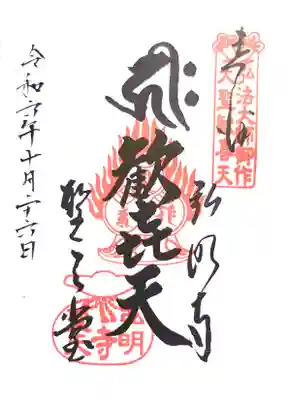 奉拝
弘法大師御作
大聖歓喜天
弘明寺
歓喜天
聖天堂
令和六年十月廿六日